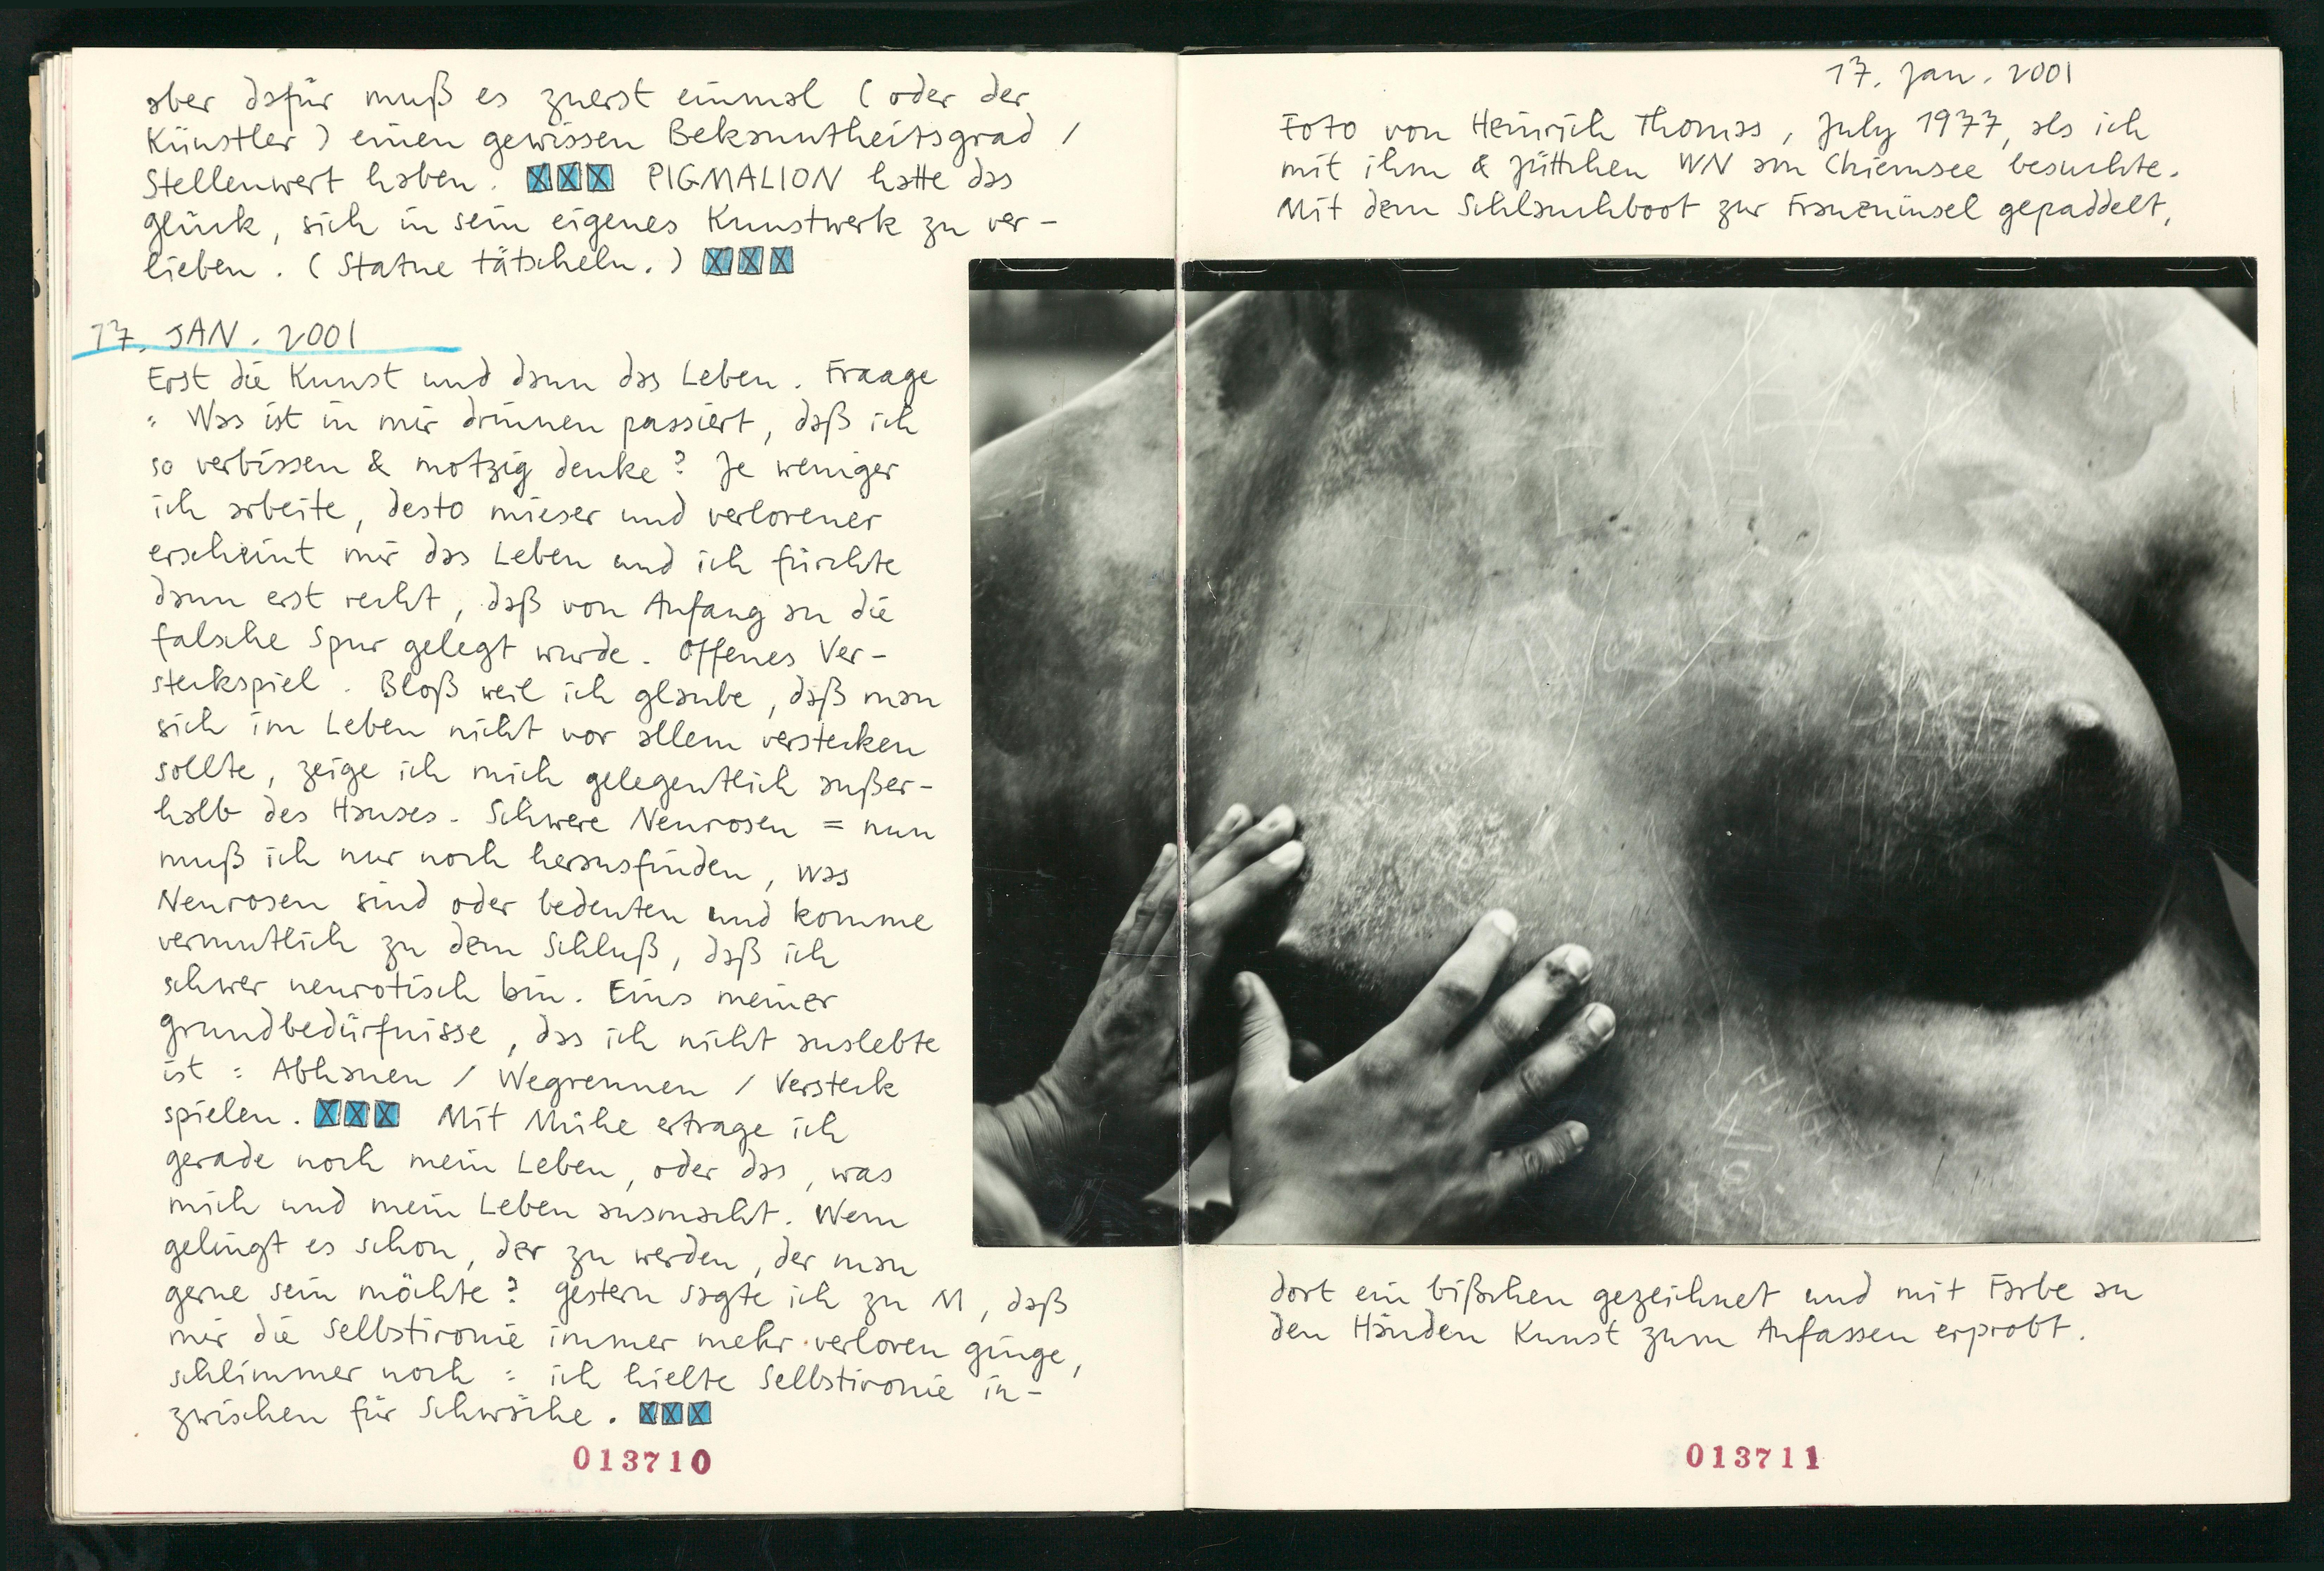 aber dafür muß es zuerst einmal (oder der
Künstler) einen gewissen Bekanntheitsgrad /
Stellenwert haben. XXX PIGMALION hatte das
Glück, sich in sein eigenes Kunstwerk zu ver-
lieben. (Statue tätscheln.) XXX
17. JAN. 2001
Erst die Kunst und dann das Leben. Fraage
: Was ist in mir drinnen passiert, daß ich
so verbissen & motzig denke? Je weniger
ich arbeite, desto mieser und verlorener
erscheint mir das Leben und ich fürchte
dann erst recht, daß von Anfang an die
falsche Spur gelegt wurde. Offenes Ver-
steckspiel. Bloß weil ich glaube, daß man
sich im Leben nicht vor allem verstecken
sollte, zeige ich mich gelegentlich außer-
halb des Hauses. Schwere Neurosen = nun
muß ich nur noch herausfinden, was
Neurosen sind oder bedeuten und komme
vermutlich zu dem Schluß, daß ich
schwer neurotisch bin. Eins meiner
Grundbedürfnisse, das ich nicht auslebte
ist : Abhauen / Wegrennen / Versteck
spielen. XXX Mit Mühe ertrage ich
gerade noch mein Leben, oder das, was
mich und mein Leben ausmacht. Wem
gelingt es schon, der zu werden, der man
gerne sein möchte? Gestern sagte ich zu M, daß
mir die Selbstironie immer mehr verloren ginge,
schlimmer noch : ich hielte Selbstironie in-
zwischen für Schwäche. XXX
013710
17. Jan. 2001
Foto von Heinrich Thomas, July 1977, als ich
mit ihm & Jüttchen WN am Chiemsee besuchte.
Mit dem Schlauchboot zur Fraueninsel gepaddelt,
dort ein bißchen gezeichnet und mit Farbe an
den Händen Kunst zum Anfassen erprobt.
013711